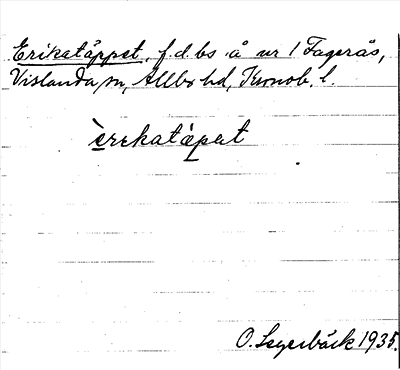 Erikatäppet, f.d. bs å nr 1 Fagerås,
Vislanda sn, Allbo hd, Kronob. l.
èrekatápet
O. Lagerbäck 1935.